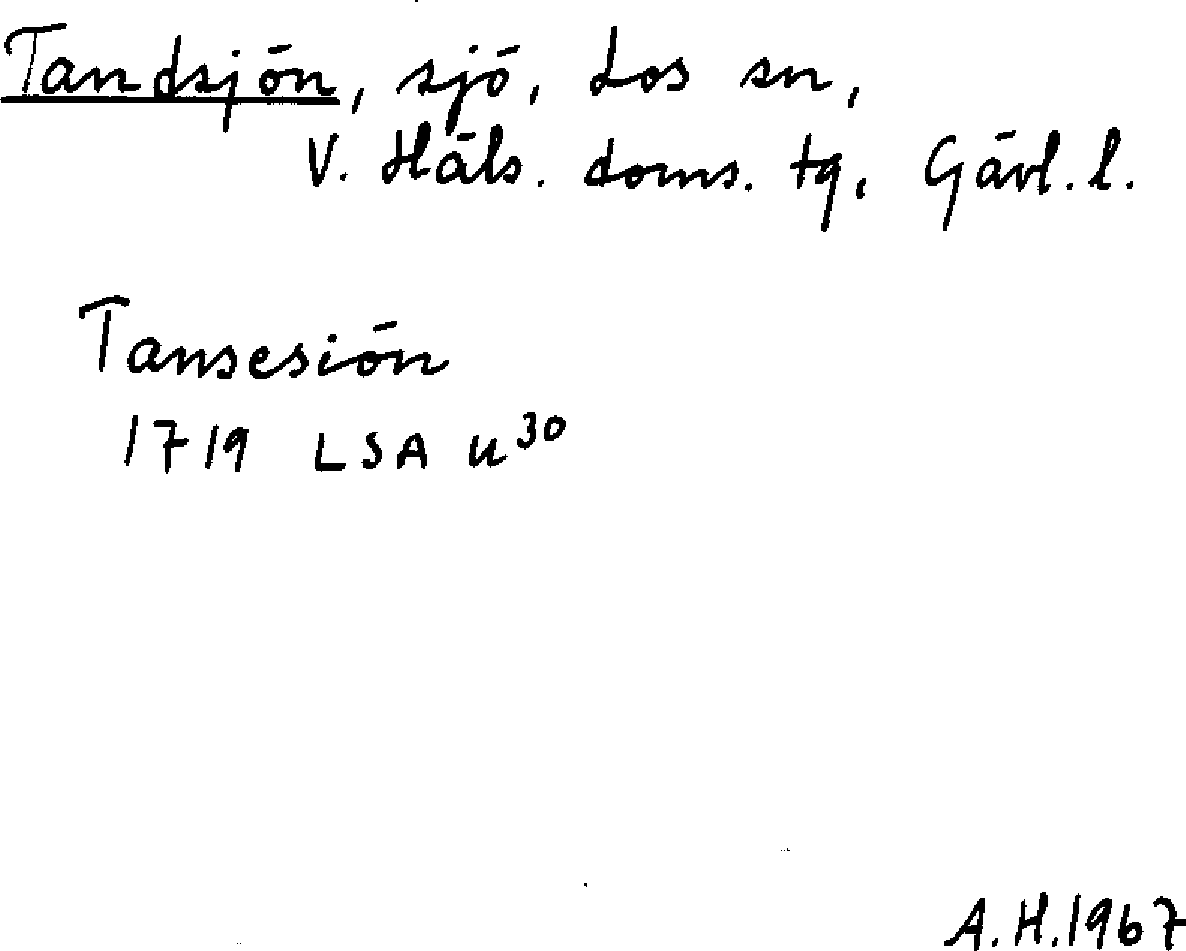 Tandsjön, sjö, Los sn,
V. Häls. doms. tg, Gävl. l.
Tansesiön
1719 LSA U30
A.H. 1967